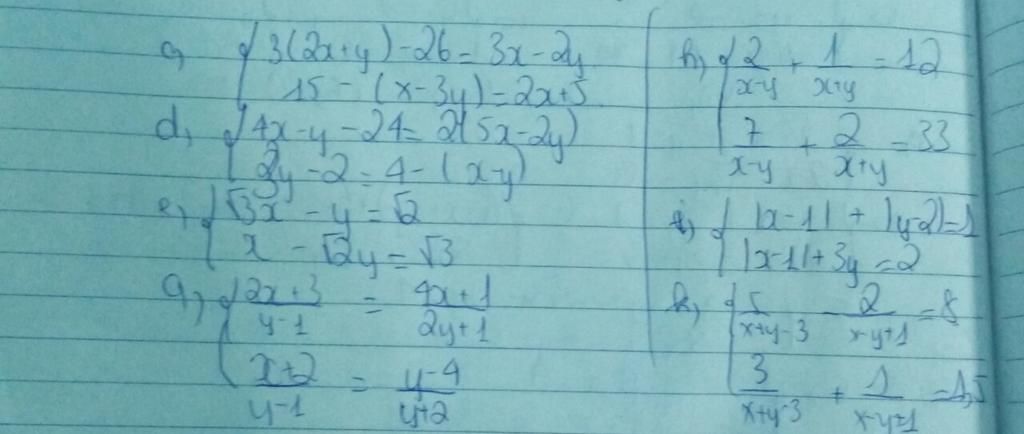 c, { 3(2x+y) - 26 = 3x - 2y
15 - (x - 3y) = 2x + 5
d, { 4x - y - 24 = 2(5x - 2y)
3y - 2 = 4 - (x - y)
e, { √3x - y = √2
x - √2y = √3
g, { (2x+3)/(y-1) = (4x+1)/(2y+1)
(x+2)/(y-1) = (y-4)/(y+2)
h, { 2/(x-y) + 1/(x+y) = 12
7/(x-y) + 2/(x+y) = 33
i, { |x-1| + |y-2| = 1
|x-1| + 3y = 2
k, { 5/(x+y-3) - 2/(x-y+1) = 8
3/(x+y-3) + 1/(x-y+1) = 1,5